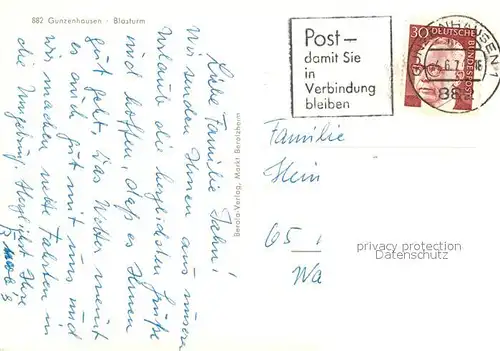 882 Gunzenhausen - Blasturm
Liebe Familie Jahn!
Wir senden Ihnen aus unserem
Urlaub die herzlichsten Grüße
und hoffen, daß es Ihnen
gut geht. Das Wetter meint
es auch gut mit uns und
wir machen nette Fahrten in
die Umgebung. Herzlichst Ihre
Berola-Verlag, Markt Berolzheim
Post—
damit Sie
in
Verbindung
bleiben
30
DEUTSCHE
BUNDESPOST
88
Familie
Hein
65
Wa
privacy protection
Datenschutz